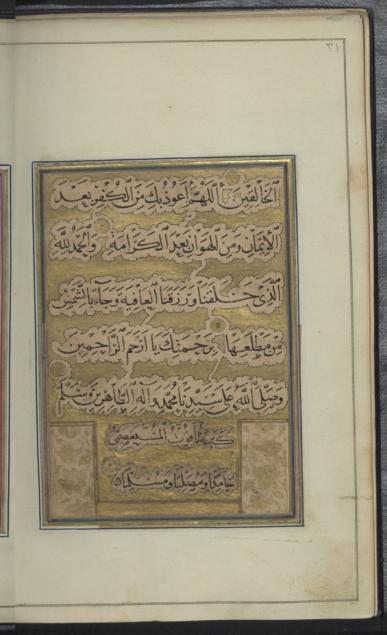 ٣١
الخَالِقِينَ اَللّٰهُمَّ اَعُوذُ بِكَ مِنَ الْكُفْرِ بَعْدَ
الْاِيمَانِ وَمِنَ الْهَوَانِ بَعْدَ الْكَرَامَةِ وَالْحَمْدُ لِلّٰهِ
الَّذِى خَلَقَنَا وَرَزَقَنَا الْعَافِيَةَ وَجَاءَ بِالشَّمْسِ
مِنْ مَطْلَعِهَا بِرَحْمَتِكَ يَا اَرْحَمَ الرَّاحِمِينَ
وَصَلَّى اللّٰهُ عَلٰى سَيِّدِنَا مُحَمَّدٍ وَآلِهِ الطَّاهِرِينَ وَسَلَّمَ
كَتَبَهُ يَاقُوتُ الْمُسْتَعْصِمِىُّ
حَامِدًا وَمُصَلِّيًا وَمُسَلِّمًا